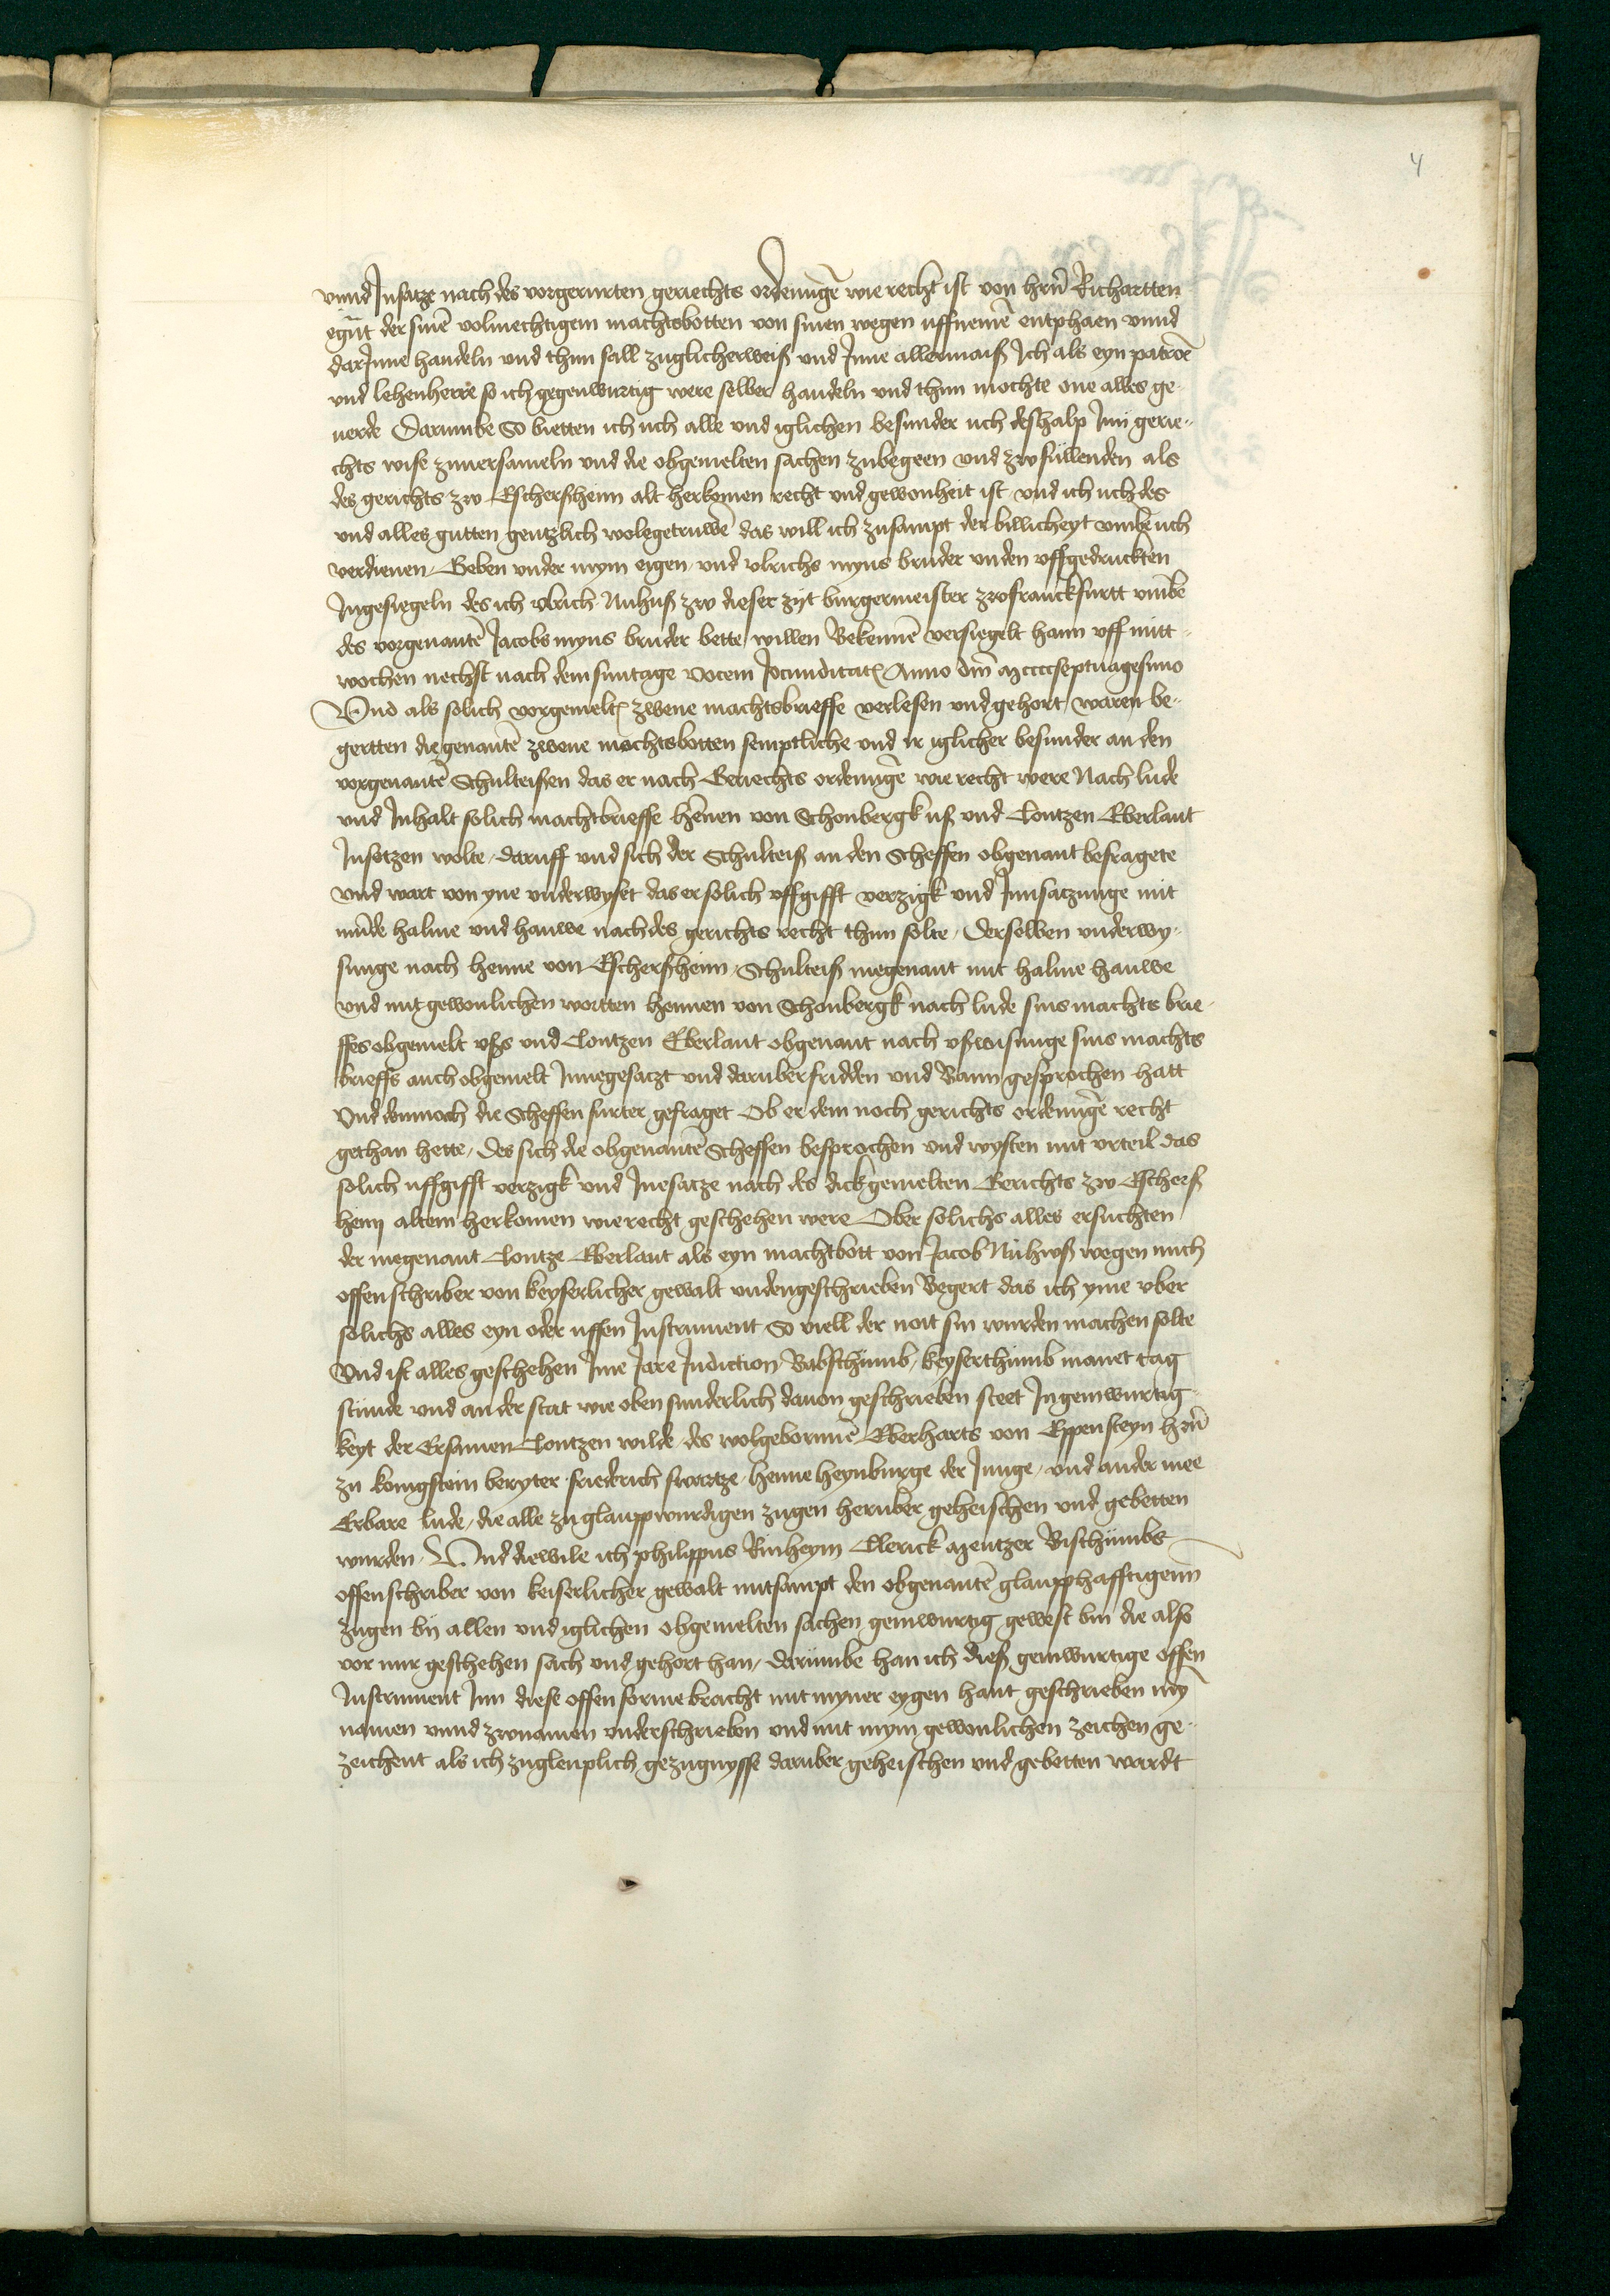 4
vnnd Insatze nach des vorgerurten geriechts ordenu̅ge wie recht ist von hrn̅ Richartten
egn̅t der sinē volmechtigem machtsbotten von sinen wegen uffnemē entphaen vnnd
darInne handeln und thun sall zuglicherweiß und Inne allermaiß Ich als eyn patroē
und lehenherre so ich gegenwurtig were selber handeln und thun mochte one alles ge¬
uerde Darumbe So bietten ich uch alle und iglichen besunder uch deshalp Inn gerie¬
chts wise zuuersameln und die obgemelten sachen zubegeen und zwfullenden als
des gerichts zw Escherßheim alt herkomen recht und gewonheit ist und ich uch des
und alles gutten gentzlich wolegetruwē das will ich zusampt der billicheyt vmbe uch
verdienen, Geben vnder mym eigen und vlrichs myns bruder vnden uffgedruckten
Ingesiegeln des ich vlrich Nuhuß zw dieser zyt burgermeister zwfranckfurtt vmbe
des vorgenantē Jacobs myns bruder bette willen Bekennē versiegelt hann uff mitt¬
wochen nechst nach dem suntage vocem Jocunditatꝭ Anno dm̅ Mccccseptuagesimo
Vnd als solich vorgemeltꝭ zwene machtsbrieffe verlesen und gehort waren be¬
gertten die genantē zwene machtsbotten semptliche und ir iglicher besunder an den
vorgenantē Schulteißen das er nach Geriechts ordenu̅ge wie recht were Nach lude
und Inhalt solich machtbrieffe He̅nen von Schonbergk uß und Contzen Eberlant
Insetzen wolte, daruff und sich der Schulteiß an den Scheffen obgenant befragete
und wart von yne vnderwyset das er solich uffgifft verzigk und Innsatzunge mit
mu̅de halme und hauwe nach des gerichts recht thun solte, Derselben vnderwy¬
sunge nach Henne von Escherßheim, Schulteiß megenant mit halme hauwe
und mit gewonlichen wortten Hennen von Schonbergk nach lude sins machts brie¬
ffes obgemelt vßs und Contzen Eberlant obgenant nach vßwisunge sins machts
brieffs auch obgemelt Innegesatzt und daruber fridden und Bann gesprochen hatt
Vnd dennoch die Scheffen furter gefraget Ob er dem noch gerichts ordenu̅ge recht
gethan hette, des sich die obgenantē Scheffen besprochen und wysten mit vrteil das
solich uffgifft verzigk und Inesatze nach des dickgemelten Gerichts zw Escherß
heim altem herkomen wie recht geschehen were Vber solichs alles ersuchten
der megenant Contze Eberlant als eyn machtbott von Jacob Nuhuß wegen mich
offenschriber von keyserlicher gewalt vndengeschrieben Begert das ich yme vber
solichs alles eyn oder uffen Instrument So viell der noit sin wurden machen solte
Vnd ist alles geschehen Ime Jare Indiction Babsthumb, keyserthumb manet tag
stunde und an der stat wie oben sunderlich dauon geschrieben steet In geinwurtig¬
keyt der Ersamen Contzen wilde des wolgebornnē Eberharts von Eppensteyn hrn̅
zu konigstein beryter friederich swartze, Henne Heynburge der Junge, und ander mee
Erbare lude, die alle zu glauppwurdigen zugen heruber geheischen und gebetten
wurden, Vnd diewile ich philippus Rinheym Clerick Mentzer Bisthumbs
offenschriber von keiserlicher gewalt mitsampt den obgenantē glaupphafftigenn
zugen by allen und iglichen obgemelten sachen geinwurtig gewest bin die also
vor mir geschehen sach und gehort han, darumbe han ich dieß geinwurtige offen
Instrument Inn diese offen forme bracht mit myner eygen hant geschrieben my̅
namen vnnd zwnamen vnderschrieben und mit mym gewonlichen zeichen ge¬
zeichent als ich zuglenplich gezugnysse daruber geheischen und gebetten wardt